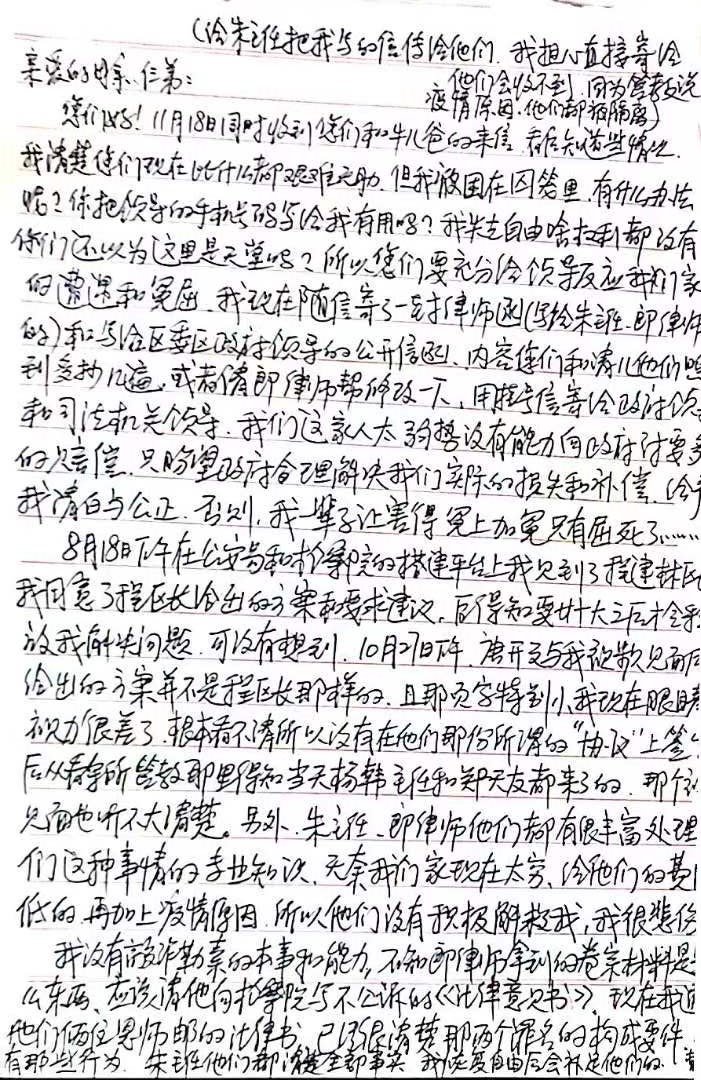 (给朱主任把我写的信传给他们. 我担心直接寄给
他们会收不到, 因为管教说
疫情原因, 他们都被隔离)
亲爱的母亲、仨弟:
您们好! 11月18日同时收到您们和牛儿爸的来信 看后知道些情况.
我清楚您们现在比什么都艰难无助. 但我被困在囚笼里, 有什么办法
呢? 你把领导的手机号码写给我有用吗? 我失去自由啥权利都没有
你们还以为这里是天堂吗? 所以您们要充分给领导反应我们家
的遭遇和冤屈. 我现在随信寄了一封律师函(写给朱主任、郎律师
的)和写给区委区政府领导的公开信函. 内容你们和涛儿他们
到多抄几遍, 或者请郎律师帮修改一下, 用挂号信寄给政府
和司法机关领导. 我们这家人太弱势没有能力向政府讨要
的赔偿. 只盼望政府合理解决我们实际的损失和补偿. 给予
我清白与公正. 否则, 我一辈子让害得冤上加冤只有屈死了……
8月18日下午在公安局和检察院的搭建平台上我见到了程建林区
我同意了程区长给出的方案和要求建议. 后得知要廿十大之后才会
放我解决问题. 可没有想到, 10月27日下午. 唐开文与我视频见面后
给出的方案并不是程区长那样的, 且那页字特别小, 我现在眼睛
视力很差了. 根本看不清所以没有在他们那份所谓的“协议”上签
后从看守所管教那里得知当天杨韩主任和郑天友都来了的. 那个
见面也听不大清楚。另外、朱主任、郎律师他们都有很丰富处理
们这种事情的专业知识、无奈我们家现在太穷、给他们的费
低的 再加上疫情原因. 所以他们没有积极解救我, 我很悲伤
我没有敲诈勒索的本事和能力, 不知郎律师拿到的卷宗材料是
么东西、应该请他向检察院写不公诉的《法律意见书》, 现在我
他们俩位恩师邮的法律书, 已经很清楚那两个罪名的构成要件
有那些行为. 朱主任他们都清楚全部事实 我恢复自由后会补足他们的